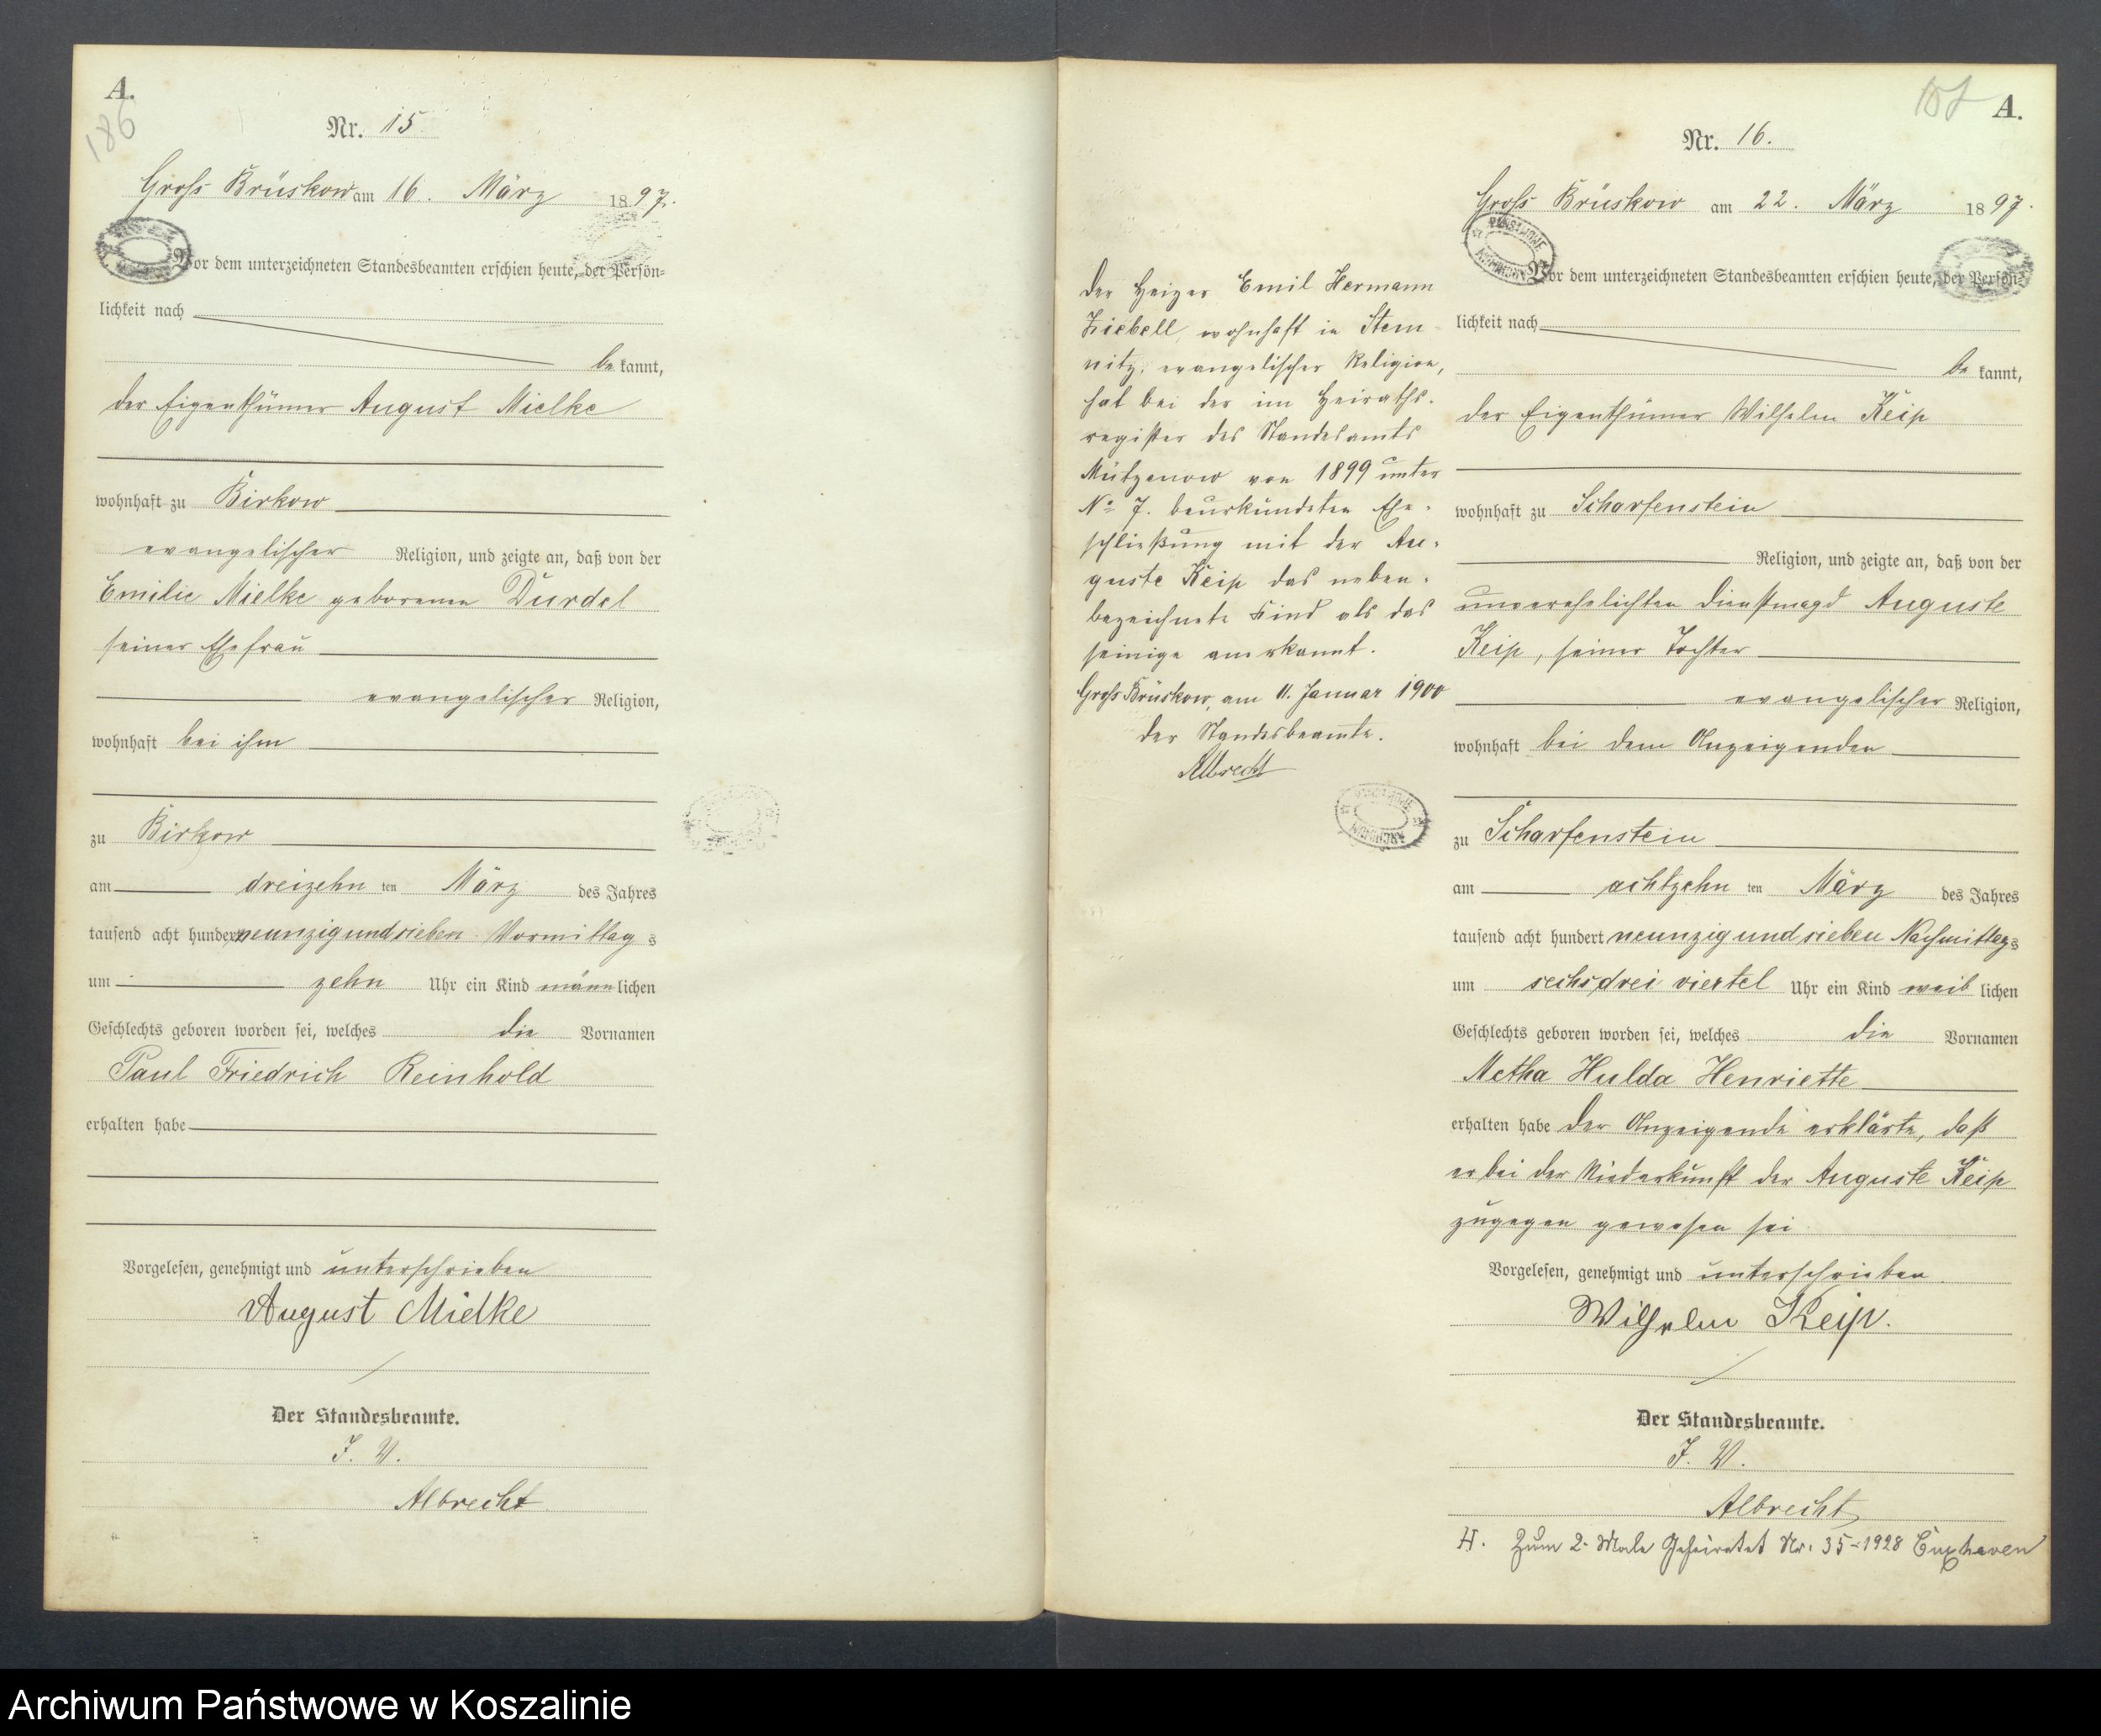 A.
186
Nr. 15.
Groß Brüskow am 16. März 1897.
Vor dem unterzeichneten Standesbeamten erschien heute, der Persön=
lichkeit nach
be kannt,
der Eigenthümer August Mielke
wohnhaft zu Birkow
evangelischer Religion, und zeigte an, daß von der
Emilie Mielke geborenen Durdel
seiner Ehefrau
evangelischer Religion,
wohnhaft bei ihm
zu Birkow
am dreizehn ten März des Jahres
tausend acht hundert neunzig und sieben Vormittag s
um zehn Uhr ein Kind männ lichen
Geschlechts geboren worden sei, welches die Vornamen
Paul Friedrich Reinhold
erhalten habe
Vorgelesen, genehmigt und unterschrieben
August Mielke
Der Standesbeamte.
J. V.
Albrecht
Der Heizer Emil Hermann
Ziebell, wohnhaft in Stem
nitz, evangelischer Religion,
hat bei der im Heiraths-
register des Standesamts
Mützenow von 1899 unter
No 7. beurkundeten Ehe-
schließung mit der Au-
guste Keip das neben-
bezeichnete Kind als das
seinige anerkannt.
Groß Brüskow, am 11. Januar 1900
Der Standesbeamte.
Albrecht
A.
Nr. 16.
Groß Brüskow am 22. März 1897.
PAŃSTWOWE
ARCHIWUM
Vor dem unterzeichneten Standesbeamten erschien heute, der Persön=
lichkeit nach
be kannt,
der Eigenthümer Wilhelm Keip
wohnhaft zu Scharfenstein
Religion, und zeigte an, daß von der
unverehelichten Dienstmagd Auguste
Keip, seiner Tochter
evangelischer Religion,
wohnhaft bei dem Anzeigenden
zu Scharfenstein
am achtzehn ten März des Jahres
tausend acht hundert neunzig und sieben Nachmittag s
um sechs drei viertel Uhr ein Kind weib lichen
Geschlechts geboren worden sei, welches die Vornamen
Metha Hulda Henriette
erhalten habe Der Anzeigende erklärte, daß
er bei der Niederkunft der Auguste Keip
zugegen gewesen sei.
Vorgelesen, genehmigt und unterschrieben.
Wilhelm Keip.
Der Standesbeamte.
J. V.
Albrecht
H. Zum 2. Male geheiratet Nr. 35-1928 Cuxhaven
Archiwum Państwowe w Koszalinie